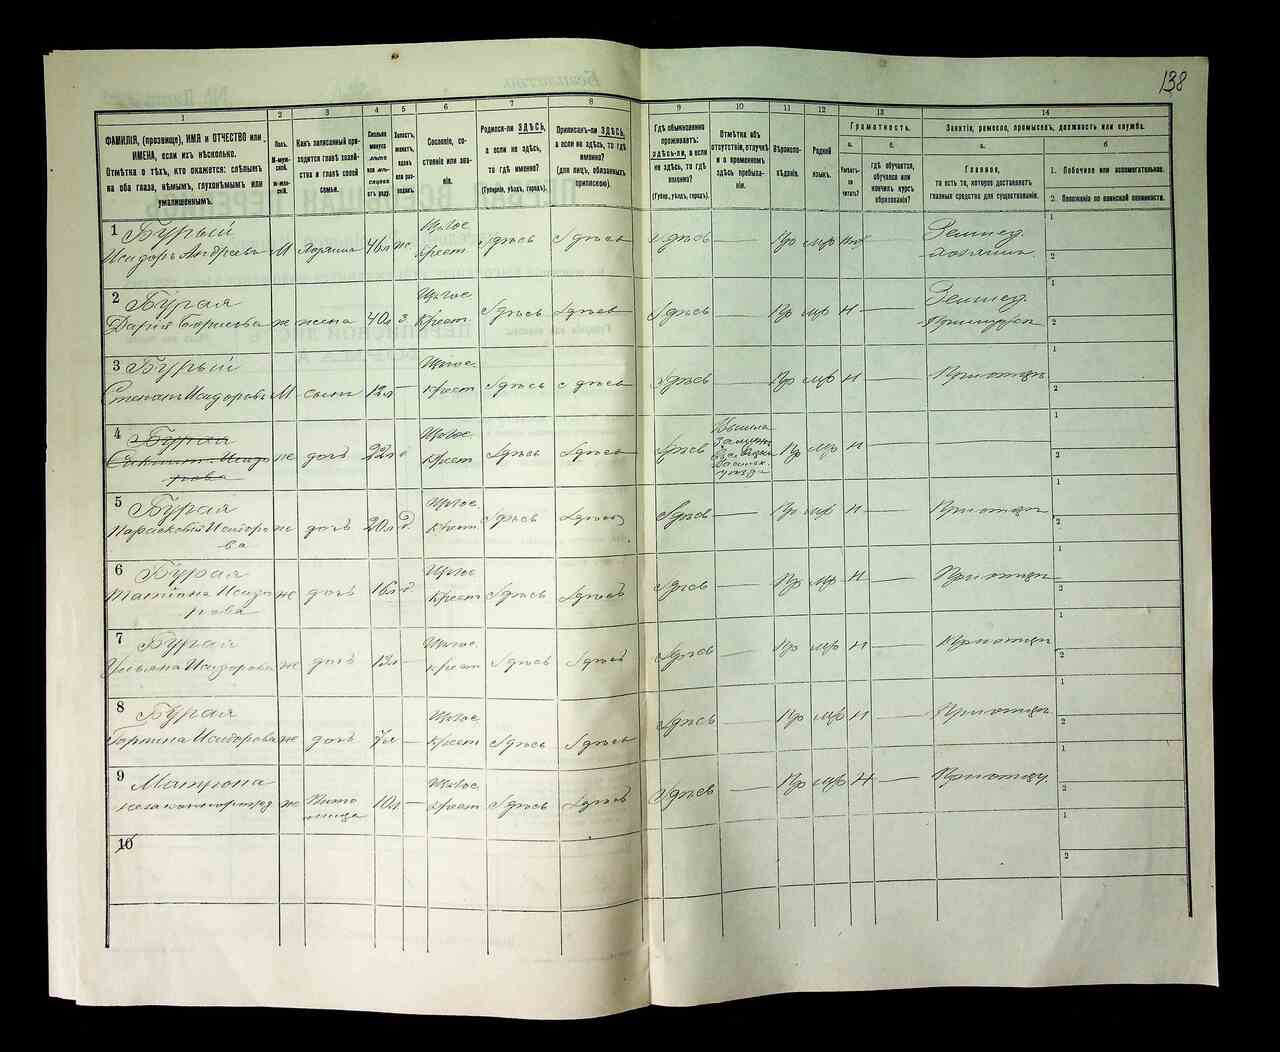 138
1
2
3
4
5
6
7
8
9
10
11
12
13
14
ФАМИЛІЯ, (прозвище), ИМЯ и ОТЧЕСТВО или
ИМЕНА, если ихъ нѣсколько.
Отмѣтка о тѣхъ, кто окажется: слѣпымъ
на оба глаза, нѣмымъ, глухонѣмымъ или
умалишеннымъ.
Полъ.
М-муж-
ской.
Ж-жен-
скій.
Какъ записанный при-
ходится главѣ хозяй-
ства и главѣ своей
семьи.
Сколько
минуло
лѣтъ
или мѣ-
сяцевъ
отъ роду.
Холостъ,
женатъ,
вдовъ
или раз-
веденъ.
Сословіе, со-
стояніе или зва-
ніе.
Родился-ли ЗДѢСЬ,
а если не здѣсь,
то гдѣ именно?
(Губернія, уѣздъ, городъ).
Приписанъ-ли ЗДѢСЬ,
а если не здѣсь, то гдѣ
именно?
(для лицъ, обязанныхъ
припискою).
Гдѣ обыкновенно
проживаетъ:
здѣсь-ли, а если
не здѣсь, то гдѣ
именно?
(Губер., уѣздъ, городъ).
Отмѣтка объ
отсутствіи, отлучкѣ
и о временномъ
здѣсь пребыва-
ніи.
Вѣроиспо-
вѣданіе.
Родной
языкъ.
Грамотность.
а.
б.
Умѣетъ-
ли
читать?
гдѣ обучается,
обучался или
кончилъ курсъ
образованія?
Занятіе, ремесло, промыселъ, должность или служба.
а.
б.
Главное,
то есть то, которое доставляетъ
главныя средства для существованія.
1. Побочное или вспомогательное.
2. Положеніе по воинской повинности.
1 Бурый
Исидоръ Андреевъ М хозяинъ 46л ж Крест здѣсь здѣсь здѣсь — Пр млр нѣт Землед.
хозяинъ
1
2
2 Бурая
Дарія ж жена 40л з Крест здѣсь здѣсь здѣсь — Пр млр н — Землед.
1
2
3 Бурый
Степанъ Исидоровъ М сынъ 12л — Крест здѣсь здѣсь здѣсь — Пр млр н — При отцѣ
1
2
4 Бурая
Исидо ж дочь 22л Крест здѣсь здѣсь здѣсь Пр млр н —
рова
Вышла
замужъ
уѣзда
1
2
5 Бурая
Параскевія Исидоро ж дочь 20л д Крест здѣсь здѣсь здѣсь — Пр млр н — При отцѣ
ва
1
2
6 Бурая
Татіана Исидо ж дочь 16л д Крест здѣсь здѣсь здѣсь — Пр млр н — При отцѣ
рова
1
2
7 Бурая
Ульяна Исидорова ж дочь 13л — Крест здѣсь здѣсь здѣсь — Пр млр н — При отцѣ
1
2
8 Бурая
Горпина Исидорова ж дочь 7л — Крест здѣсь здѣсь здѣсь — Пр млр н — При отцѣ
1
2
9 Матрона
ж Пито 10л — Крест здѣсь здѣсь здѣсь — Пр млр н — При отцѣ
мица
1
2
10
1
2